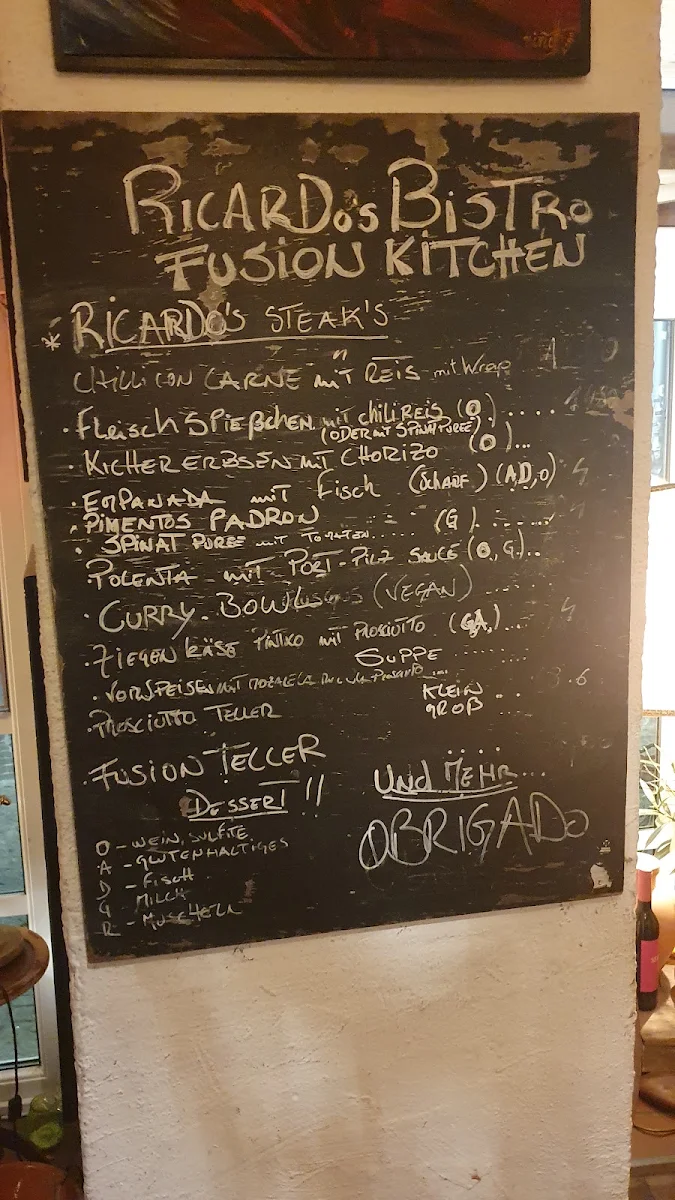 RICARDo's BiSTRo
FUSION KITCHEN
* RICARDO'S STEAK'S
CHILLI CON CARNE mit REIS mit Wrap
· FLeisch SPIEßCHEN mit chili REIS (O) .....
(ODER mit SPINAT PUREE)
· KICHERERBSEN mit CHORIZO (O)...
· EMPANADA mit Fisch (SCHARF) (A,D,O)
· PIMENTOS PADRON
· SPINAT PUREE mit TOMATEN..... (G).......
POLENTA mit PORT-PILZ SAUCE (O, G)..
· CURRY. BOWLS (VEGAN) .....
· ZIEGEN KÄSE PINTXO mit PROSCIUTTO (GA,)...
SUPPE ........
· VORSPEISEN mit
· PROSCIUTTO TELLER
KLEIN ..
GROß ...
· FUSION TELLER
DESSERT !!
UND MEHR...
OBRIGADO
O - WEIN, SULFITE
A - GLUTENHALTIGES
D - FISCH
G - MILCH
R - MUSCHELN